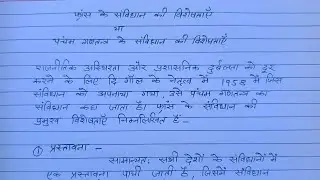 फ्रांस के संविधान की विशेषताएँ
या
पंचम गणतन्त्र के संविधान की विशेषताएँ
राजनीतिक अस्थिरता और प्रशासनिक दुर्बलता को दूर
करने के लिए दि गॉल के नेतृत्व में 1958 में जिस
संविधान को अपनाया गया, उसे पंचम गणतन्त्र का
संविधान कहा जाता है। फ्रांस के संविधान की
प्रमुख विशेषताएँ निम्नलिखित हैं -
① प्रस्तावना -
सामान्यतः सभी देशों के संविधानों में
एक प्रस्तावना पायी जाती है, जिसमें संविधान